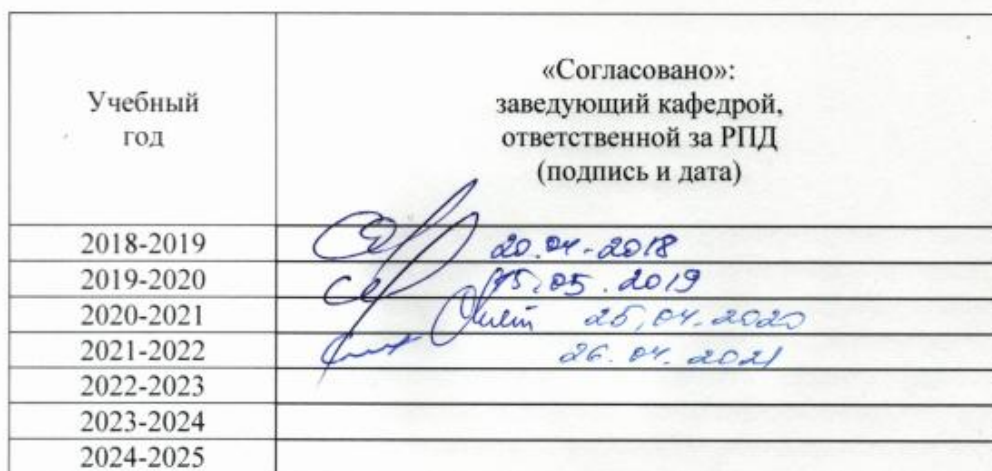 Учебный
год
«Согласовано»:
заведующий кафедрой,
ответственной за РПД
(подпись и дата)
2018-2019 20.04.2018
2019-2020 15.05.2019
2020-2021 25.04.2020
2021-2022 26.04.2021
2022-2023
2023-2024
2024-2025